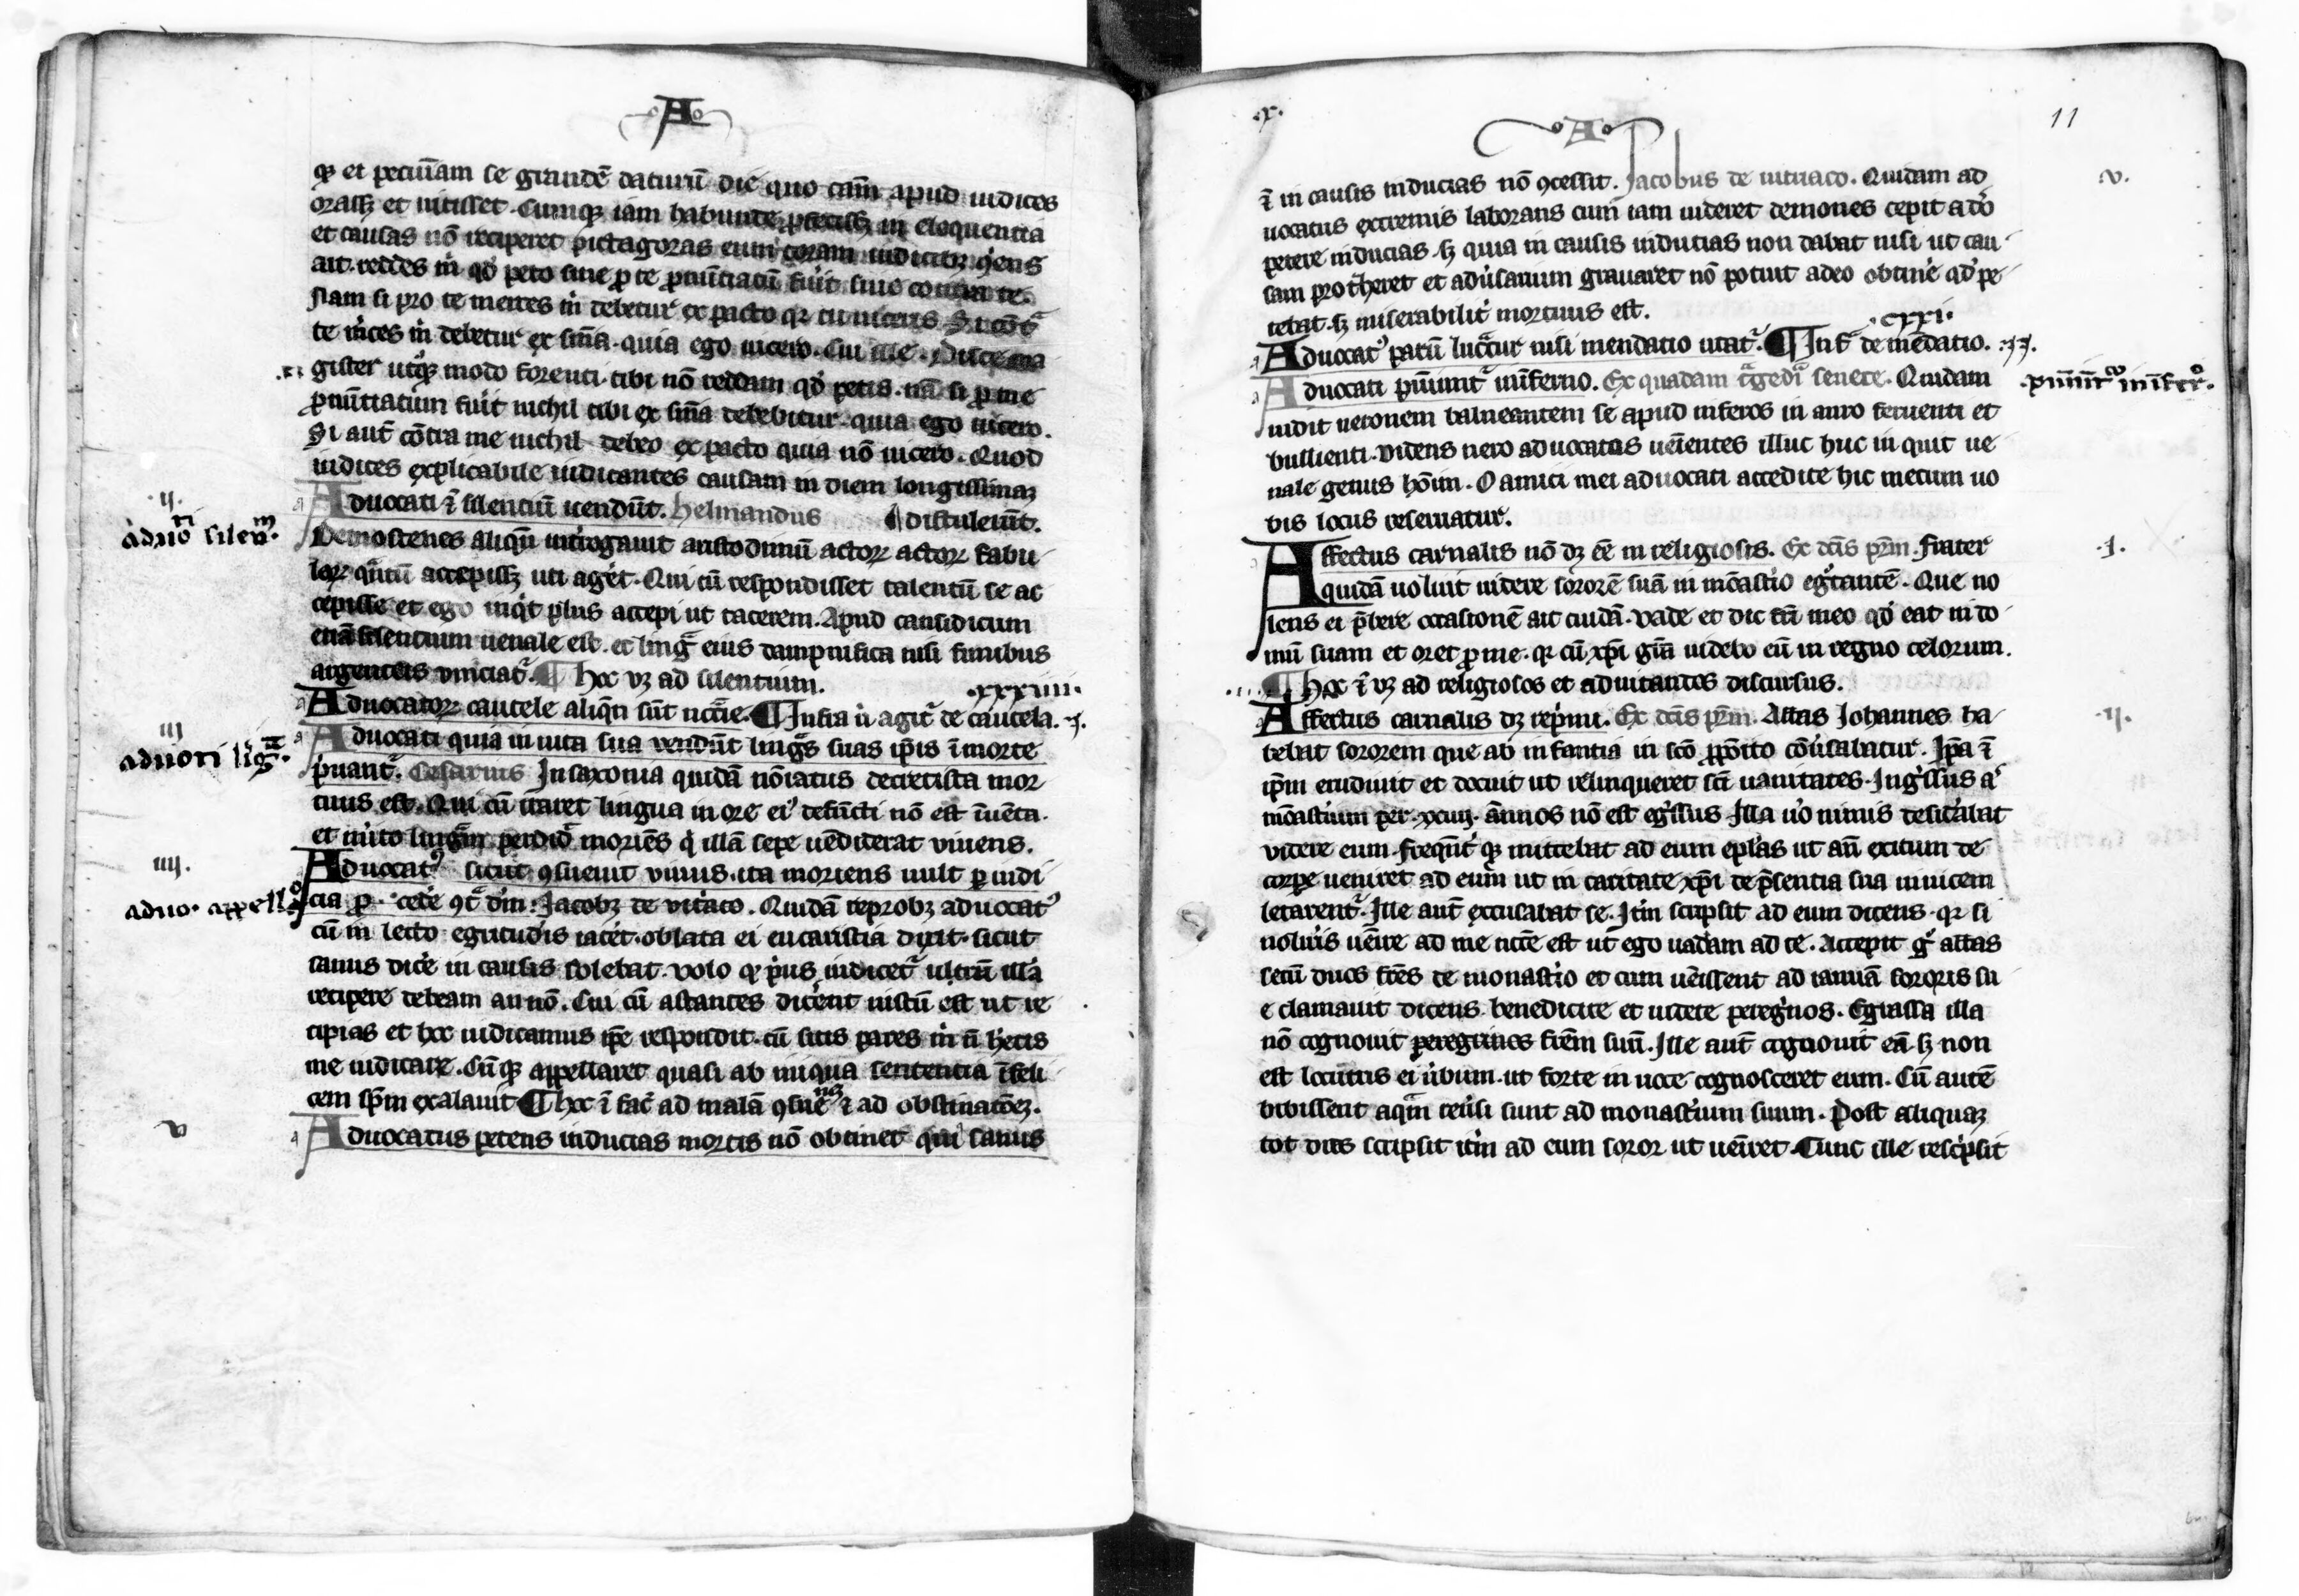 A
qꝫ et pecūiam se grandē daturū die quo cām apud iudices
orassꝫ et uicisset. Cumqꝫ iam habunde ꝓfecissꝫ in eloquentia
et causas nō reciperet pictagoras eum coram iudicibꝫ ꝯuēs
ait. reddes m̄ qd̓ peto siue ꝓ te ꝓnūtiatū fūit siue contra te.
Nam si pro te metes m̄ debetur̄ ex pacto qꝛ tu uiceris Si cōt̄
te m̄ces m̄ debetur̄ ex sn̄ia. quia ego uicero. Cui ille. Disce ma
gister utqꝫ modo forenti. tibi nō reddam qd̓ petis. nā si ꝓ me
ꝓnūtiatum fuit nichil tibi ex sn̄ia debebitur. quia ego uicero.
Si aut̄ cōtra me nichil debeo ex pacto quia nō uicero. Quod
iudices explicabile iudicantes causam in diem longissimaꝫ
¶ distulerūt.
.ij.
aduoti silen̄m.
Aduocati ⁊ silenciū uendūt. helinandus
Demostenes aliqn̄ int̓rogauit aristodimū actoꝝ actoꝝ fabu
laꝝ qn̄tū accepissꝫ uti aget̄. Qui cū respondisset talentū se ac
cepisse et ego inqt̓ plus accepi ut tacerem. Apud causidicum
etiā silentium uenale est. et ling̓ eius dampnifica nisi funibus
argenteis uinciat̄. ¶ hoc uꝫ ad silentium.
.xxxiiii.
Aduocatoꝝ cautele aliqn̄ sūt nc̄cie. ¶ Infra u̓ agit̄ de cautela. .j.
iij
aduoti lig̓ā.
Aduocati quia in uita sua vendūt lingas suas ip̄is ī morte
p̓uant̄. Cesarius In saxonia quidā nōiatus decretista mor
tuus est. Qui cū iaret lingua in ore ei᾽ defūcti nō est īuēta.
et m̓ito linguam perdid̓ moriēs q̓ illā sepe uēdiderat viuens.
iiij.
aduo. appell̓
Aduocat᾽ sicut ꝯsueuit viuus. ita moriens uult p iudi
cia ꝓcedē ꝯt̓ dm̄. Jacobꝫ de vit̓aco. Quidā reprobꝫ aduocat᾽
cū in lecto egritudīs iacet̄. oblata ei eucaristia dixit. sicut
sanus dicē in causis solebat. volo qꝫ p̓us iudicet̄ utrū illā
recipere debeam an nō. Cui cū astantes dicēnt iustū est ut re
cipias et hoc iudicamus ip̄e respondit. cū sitis pares m̄ n̄ hētis
me iudicare. Cūqꝫ appellaret quasi ab iniqua sententia īfeli
cem sp̄m exalauit ¶ hoc ⁊ fac̄ ad malā ꝯsuetn̄eꝫ ⁊ ad obstinatōeꝫ.
v
Aduocatus petens inducias mortis nō obtinet qui sanus
.x.
A
11
⁊ in causis inducias nō ꝯcessit. Jacobus de uitriaco. Quidam ad
v.
uocatus extremis laborans cum iam uideret demones cepit a dō
petere inducias. sꝫ quia in causis inducias non dabat nisi ut cau
sam protheret et adu̓sarium grauaret nō potuit a deo obtinē qd̓ pe
tebat. sꝫ miserabilit̓ mortuus est.
.cxxi.
Aduocat᾽ parū lucat̄ur nisi mendatio utat̄. ¶ Inf̄ de mēdatio. .ij.
Aduocati pn̄iunt̄ in īferno. Ex quadam t̓gedi᾽ senece. Quidam
.pn̄iūt̓ in īfer̓o.
uidit neronem balneantem se apud inferos in auro feruenti et
bullienti. videns nero aduocatos ueīentes illuc huc inquit ue
nale genus hōim. O amici mei aduocati accedite hic mecum uo
bis locus reseruatur̄.
Affectus carnalis nō dꝫ eē in religiosis. Ex dc̄is pr̄m. frater
.j.
quidā uoluit uidere sororē suā in mōastio egrotantē. Que no
lens ei p̓bere occasionē ait cuidā. vade et dic fr̄i meo qd̓ eat in do
mū suam et oret ꝓ me. qꝛ cū xp̄i gr̄a uidebo eū in regno celorum.
¶ hoc ⁊ uꝫ ad religiosos et ad uitandos discursus.
Affectus carnalis dꝫ rep̓mi. Ex dc̄is pr̄m. Abbas Johannes ha
.ij.
bebat sororem que ab infantia in scō ꝓpōito cōu̓sabatur̄. Ip̄a ⁊
ip̄m erudiuit et docuit ut relinqueret sc̄li uanitates. Ing̓ssus a᾽
mōastium per. xxiij. ānos nō est eg̓ssus. Illa uo nimis desid̓abat
videre eum. freqn̄t̓ qꝫ mittebat ad eum eplas ut an̄ exitum de
corpe ueniret ad eum ut in caritate xp̄i de p̓sentia sua inuicem
letarent̄. Ille aut̄ excusabat se. Itm̄ scripsit ad eum dicens. qꝛ si
nolu̓is uēire ad me nccē est ut ego uadam ad te. Accepit g᾽ abbas
secū duos fr̄es de monastio et cum uēissent ad ianuā sororis su
e clamauit dicens. benedicite et uidete peregn̓os. Egressa illa
nō cognouit peregrinos fr̄em suū. Ille aut̄ cognouit eā. sꝫ non
est locutus ei ūbum. ut forte in uoce cognosceret eum. Cū autē
bibissent aqm̄ reu̓si sunt ad monast̓ium suum. Post aliquaꝫ
tot dies scripsit itm̄ ad eum soror ut ueīret. Tunc ille resc̓psit